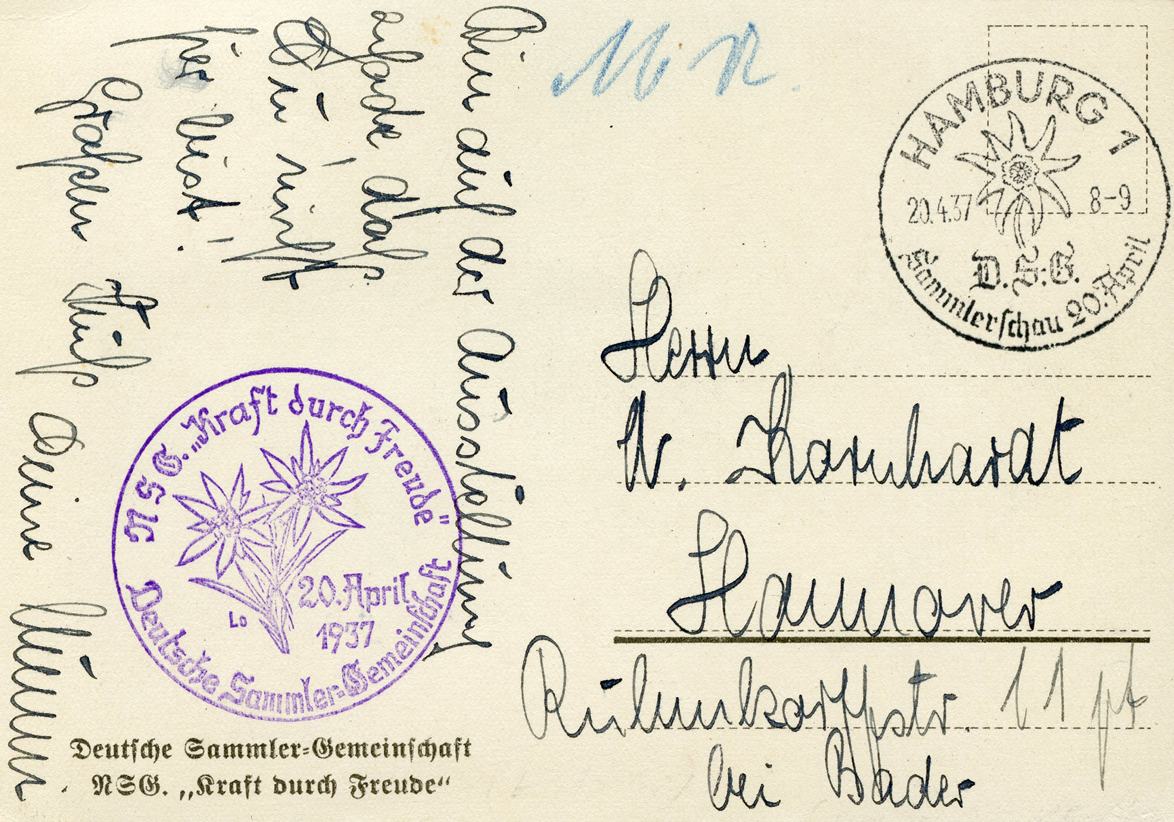 Bin auf der Ausstellung
schade, daß
Du nicht
hier bist!
Großen Kuß Deine
M R.
HAMBURG 1
20.4.37 8-9
D.S.G.
Sammlerschau 20. April
Herrn
W. Kornhardt
Hannover
11 pt
bei Bader
NSG. „Kraft durch Freude"
20. April
1937
Lo
Deutsche Sammler-Gemeinschaft
Deutsche Sammler-Gemeinschaft
NSG. „Kraft durch Freude“